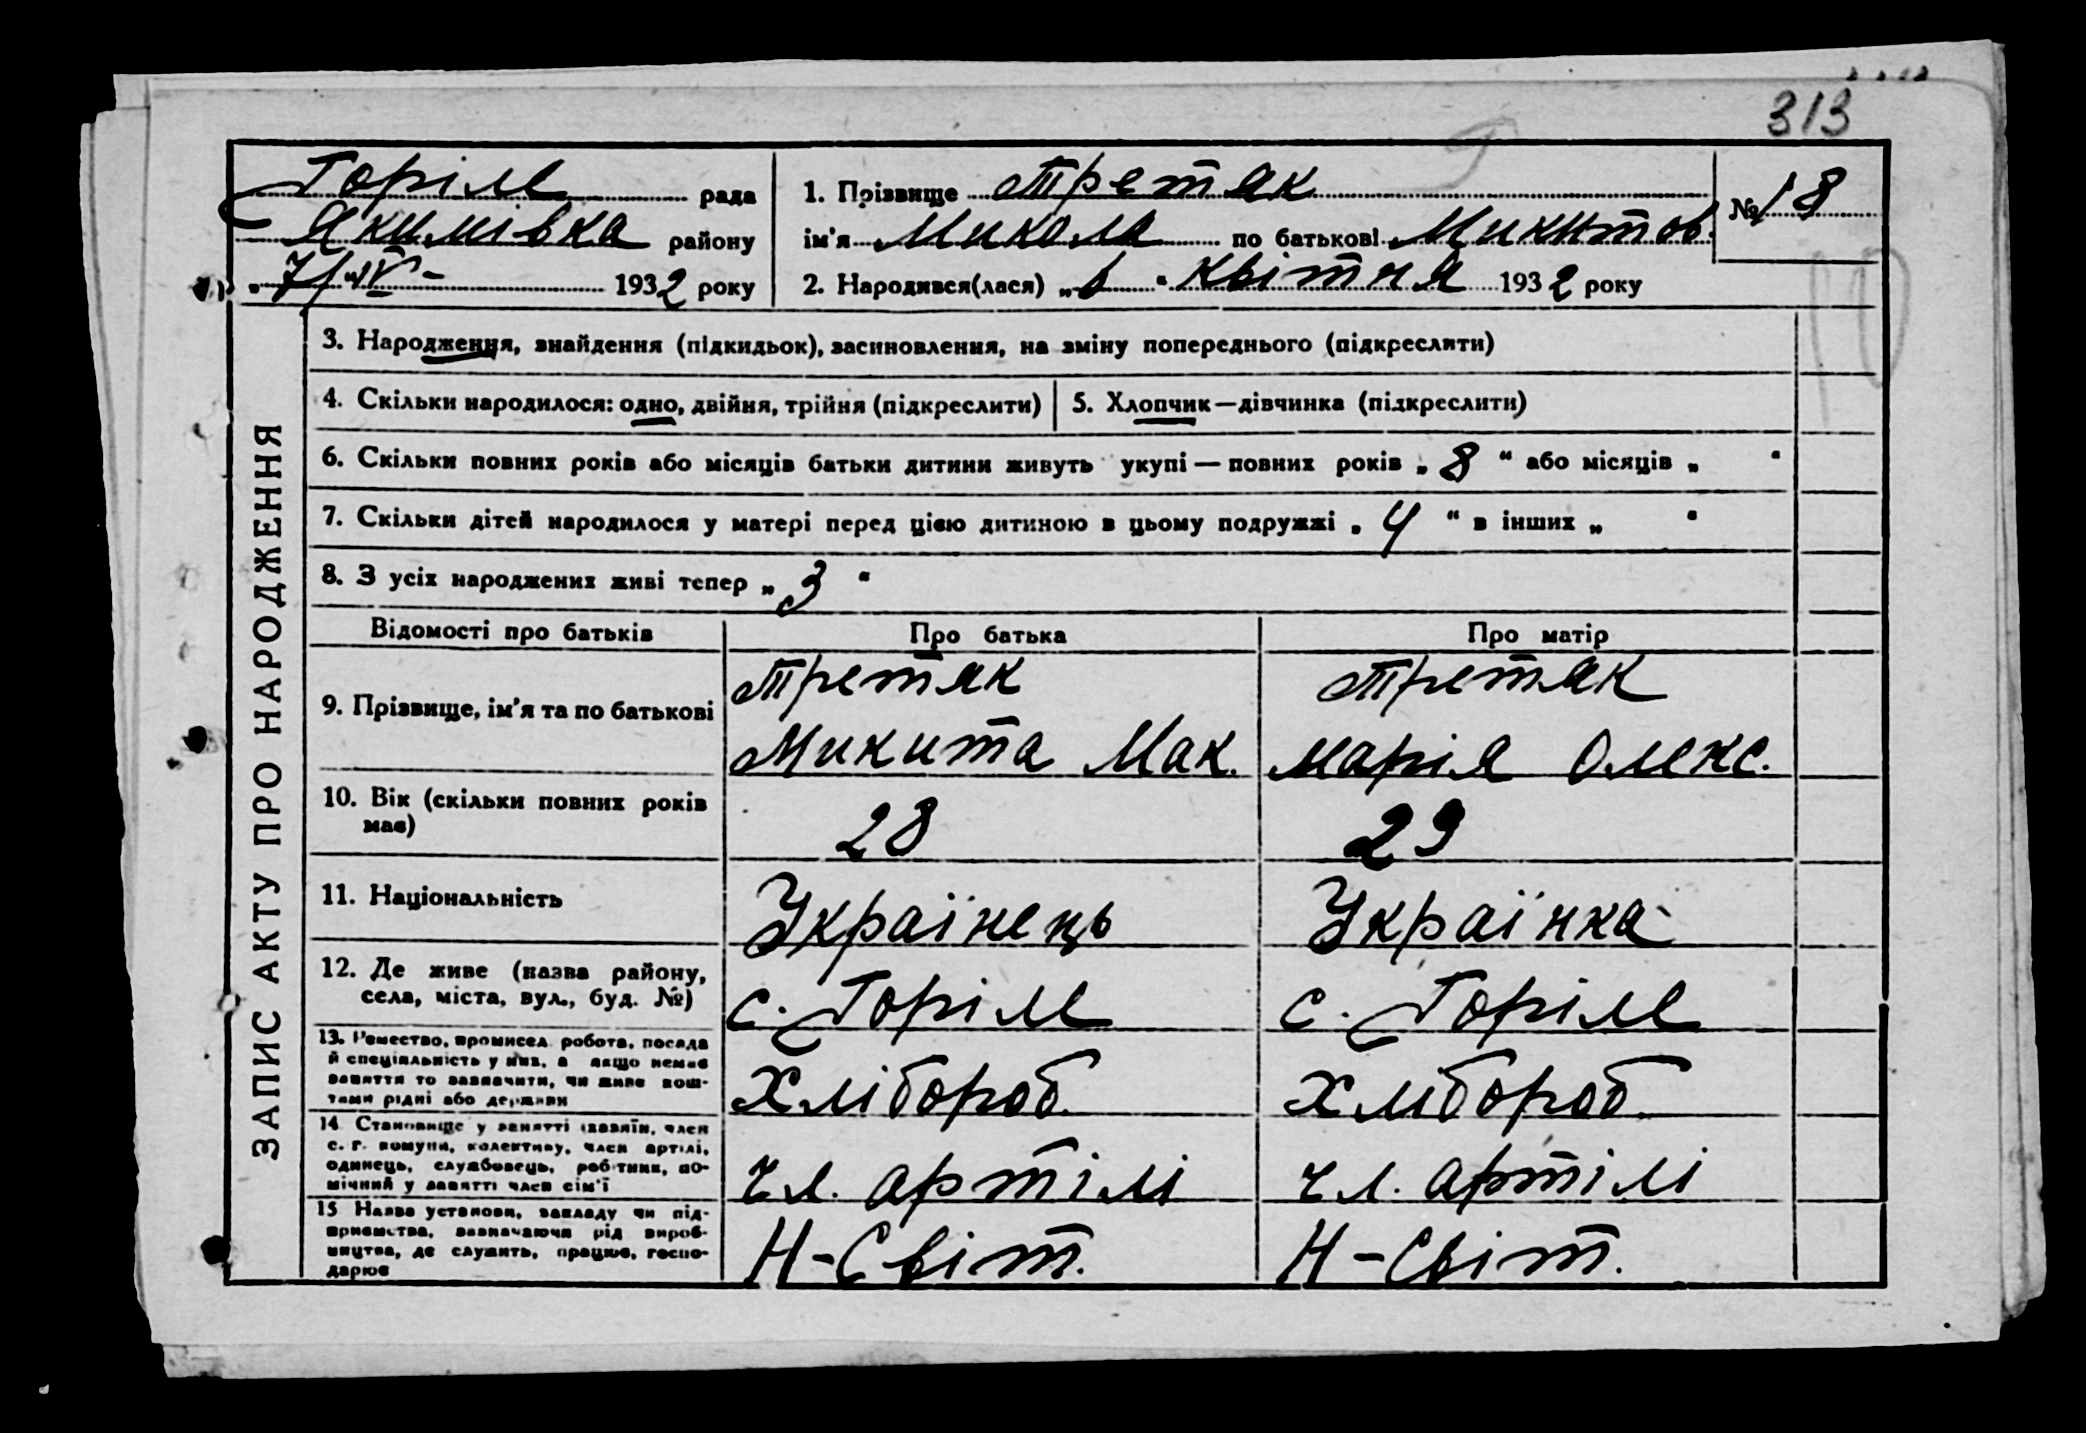 313
Горіле рада
Якимівка району
„ 7/IV- 1932 року
1. Прізвище Третяк
ім'я Микола по батькові Микитов.
2. Народився(лася) „6“ квітня 1932 року
№ 18
10
ЗАПИС АКТУ ПРО НАРОДЖЕННЯ
3. Народження, знайдення (підкидьок), засиновлення, на зміну попереднього (підкреслити)
4. Скільки народилося: одно, двійня, трійня (підкреслити)
5. Хлопчик—дівчинка (підкреслити)
6. Скільки повних років або місяців батьки дитини живуть укупі — повних років „8“ або місяців „ “
7. Скільки дітей народилося у матері перед цією дитиною в цьому подружжі „4“ в інших „ “
8. З усіх народжених живі тепер „3“
Відомості про батьків Про батька Про матір
9. Прізвище, ім'я та по батькові
Третяк
Микита Мак.
Третяк
Марія Олекс.
10. Вік (скільки повних років
має)
28
29
11. Національність
Українець
Українка
12. Де живе (назва району,
села, міста, вул., буд. №)
с. Горіле
с. Горіле
13. Ремество, промисел, робота, посада
й спеціяльність у них, а якщо немає
заняття то зазначити, чи живе кош-
тами рідні або держави
Хлібороб.
Хлібороб.
14 Становище у занятті (хазяїн, член
с. г. комуни, колективу, член артілі,
одинець, службовець, робітник, по-
мічний у занятті член сім'ї
чл. артілі
чл. артілі
15 Назва установи, закладу чи під-
приємства, зазначаючи рід вироб-
ництва, де служить, працює, госпо-
дарює
Н-Світ.
Н-Світ.